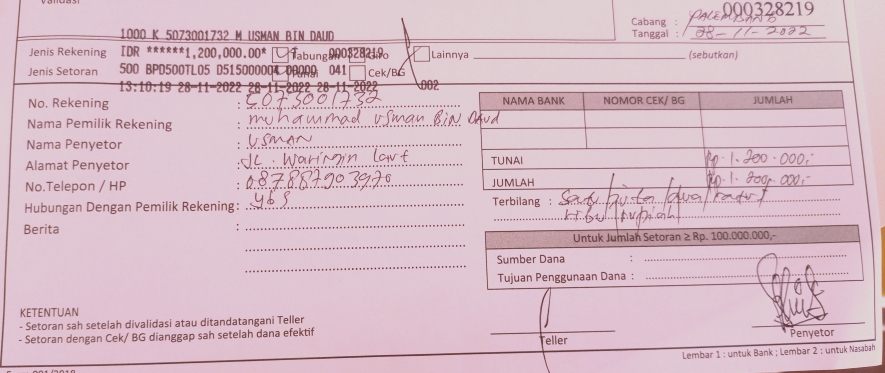 Validasi
000328219
1000 K 5073001732 M USMAN BIN DAUD
Cabang : PALEMBANG
Tanggal : 28-11-2022
Jenis Rekening IDR ******1,200,000.00* Tabungan 000328219 Giro Lainnya (sebutkan)
Jenis Setoran 500 BPD500TL05 D515000004 00000 Tunai 041 Cek/BG
13:10:19 28-11-2022 28-11-2022 28-11-2022 002
No. Rekening : 5073001732
Nama Pemilik Rekening : muhammad USman BIN DAud
Nama Penyetor : USMAN
Alamat Penyetor : JL. Waringin Laut
No.Telepon / HP : 087887903970
Hubungan Dengan Pemilik Rekening: ybs
Berita :
NAMA BANK NOMOR CEK/ BG JUMLAH
TUNAI Rp. 1.200.000,-
JUMLAH Rp. 1.200.000,-
Terbilang : Satu juta dua ratus
ribu rupiah
Untuk Jumlah Setoran ≥ Rp. 100.000.000,-
Sumber Dana :
Tujuan Penggunaan Dana :
KETENTUAN
- Setoran sah setelah divalidasi atau ditandatangani Teller
- Setoran dengan Cek/ BG dianggap sah setelah dana efektif
Teller
Penyetor
Lembar 1 : untuk Bank ; Lembar 2 : untuk Nasabah